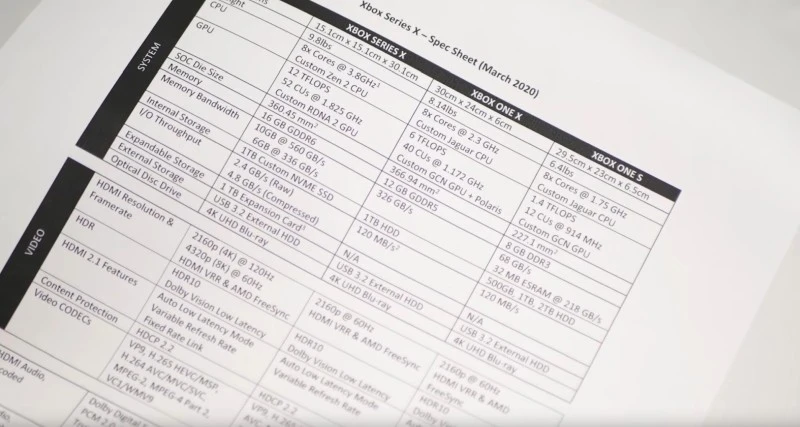 Xbox Series X – Spec Sheet (March 2020)
XBOX SERIES X
XBOX ONE X
XBOX ONE S
SYSTEM
15.1cm x 15.1cm x 30.1cm
30cm x 24cm x 6cm
29.5cm x 23cm x 6.5cm
9.8lbs
8.14lbs
6.4lbs
CPU
8x Cores @ 3.8GHz¹
Custom Zen 2 CPU
8x Cores @ 2.3 GHz
Custom Jaguar CPU
8x Cores @ 1.75 GHz
Custom Jaguar CPU
GPU
12 TFLOPS
52 CUs @ 1.825 GHz
Custom RDNA 2 GPU
6 TFLOPS
40 CUs @ 1.172 GHz
Custom GCN GPU + Polaris
1.4 TFLOPS
12 CUs @ 914 MHz
Custom GCN GPU
SOC Die Size
360.45 mm²
366.94 mm²
227.1 mm²
Memory
16 GB GDDR6
12 GB GDDR5
8 GB DDR3
Memory Bandwidth
10GB @ 560 GB/s
6GB @ 336 GB/s
326 GB/s
68 GB/s
32 MB ESRAM @ 218 GB/s
Internal Storage
1TB Custom NVME SSD
1TB HDD
500GB, 1TB, 2TB HDD
I/O Throughput
2.4 GB/s (Raw)
4.8 GB/s (Compressed)
120 MB/s²
120 MB/s
Expandable Storage
1 TB Expansion Card³
N/A
N/A
External Storage
USB 3.2 External HDD
USB 3.2 External HDD
USB 3.2 External HDD
Optical Disc Drive
4K UHD Blu-ray
4K UHD Blu-ray
4K UHD Blu-ray
VIDEO
HDMI Resolution &
Framerate
2160p (4K) @ 120Hz
4320p (8K) @ 60Hz
HDMI VRR & AMD FreeSync
2160p @ 60Hz
HDMI VRR & AMD FreeSync
2160p @ 60Hz
HDMI VRR & AMD FreeSync
HDR
HDR10
Dolby Vision Low Latency
HDR10
Dolby Vision Low Latency
HDR10
Dolby Vision
HDMI 2.1 Features
Auto Low Latency Mode
Variable Refresh Rate
Fixed Rate Link
Auto Low Latency Mode
Variable Refresh Rate
Content Protection
HDCP 2.2
HDCP 2.2
Video CODECs
VP9, H.265 HEVC/MSP,
H.264 AVC/MVC/SVC,
MPEG-2, MPEG-4 Part 2,
VC1/WMV9
VP9,
HDMI Audio,
Dolby Digital